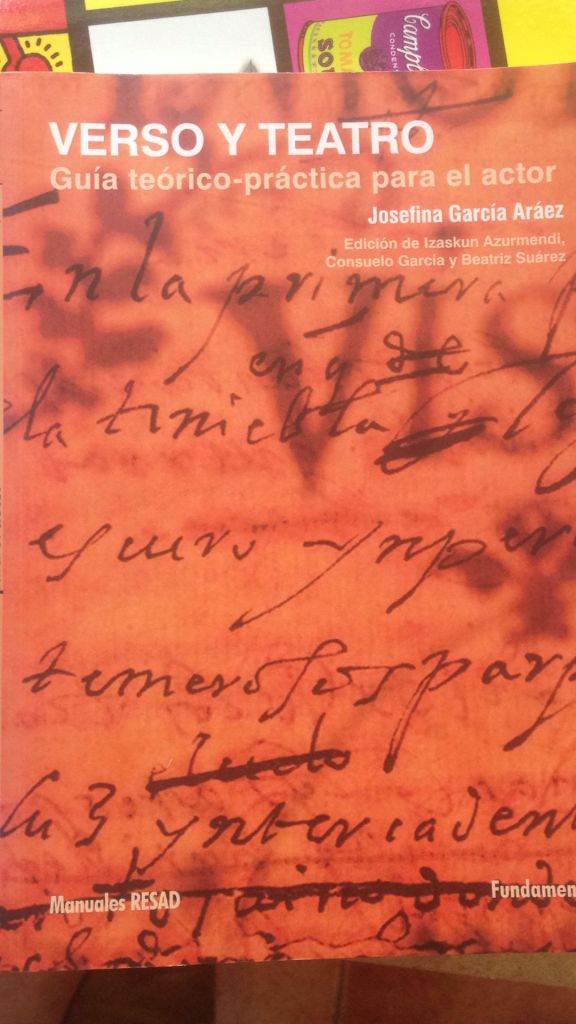 Campb
CONDENS
TOMA
SOU
VERSO Y TEATRO
Guía teórico-práctica para el actor
Josefina García Aráez
Edición de Izaskun Azurmendi,
Consuelo García y Beatriz Suárez
En la primera
en q de
la tiniebla
escuro ynper
temerosos parp
luz yntercaden
Manuales RESAD
Fundamen